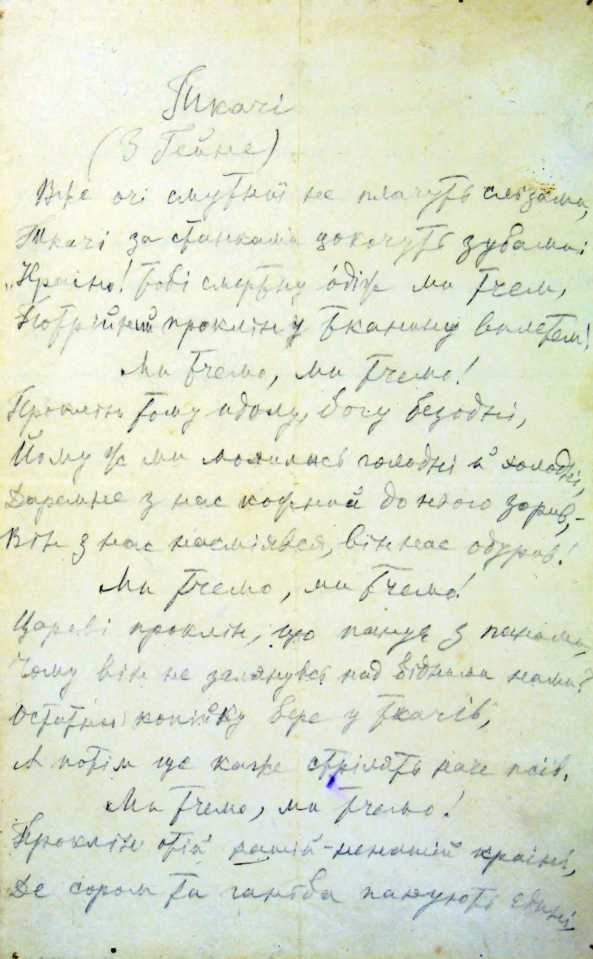 Ткачі
(З Гейне)
Вже очі смутнії не плачуть сльозами,
Ткачі за станками цокочуть зубами:
„Країно! тобі смертну одіж ми тчем,
Потрійний проклін у тканину вплетем!
Ми тчемо, ми тчемо!
Проклін тому идолу, богу безодні,
Йому ж ми молились голодні й холодні,
Даремне з нас кожний до нього зорив, –
Він з нас насміявся, він нас одурив!
Ми тчемо, ми тчемо!
Цареві проклін, що панує з панами,
Чому він не зглянувсь над бідними нами?
Останню копійку бере у ткачів,
А потім ще каже стрілять наче псів.
Ми тчемо, ми тчемо!
Проклін отій нашій-ненашій країні,
Де сором та ганьба панують єдині,